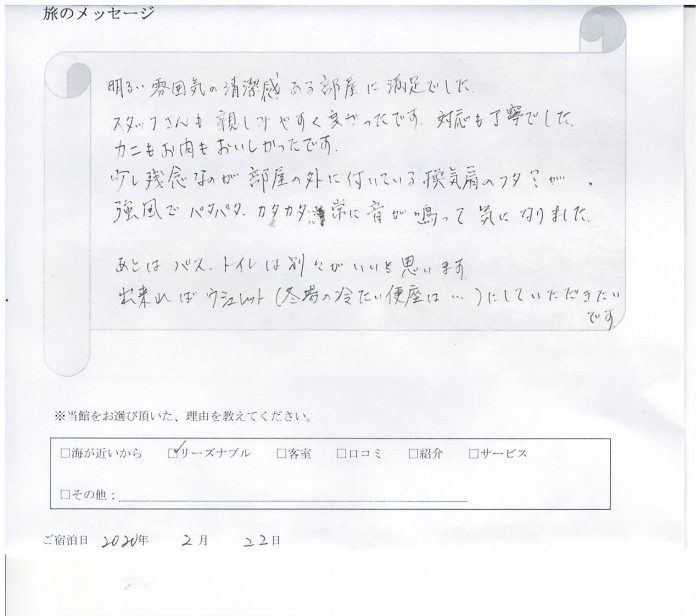 旅のメッセージ
明るい雰囲気の清潔感ある部屋に満足でした。
スタッフさんも親しみやすく良かったです。対応も丁寧でした。
カニもお肉もおいしかったです。
少し残念なのが部屋の外に付いている換気扇のフタ?が、
強風でパタパタ、カタカタ常に音が鳴って気になりました。
あとはバス、トイレは別々がいいと思います。
出来ればウシュレット(冬場の冷たい便座は…)にしていただきたい
です。
※当館をお選び頂いた、理由を教えてください。
□海が近いから ☑リーズナブル □客室 □口コミ □紹介 □サービス
□その他:
ご宿泊日 2020年 2月 22日